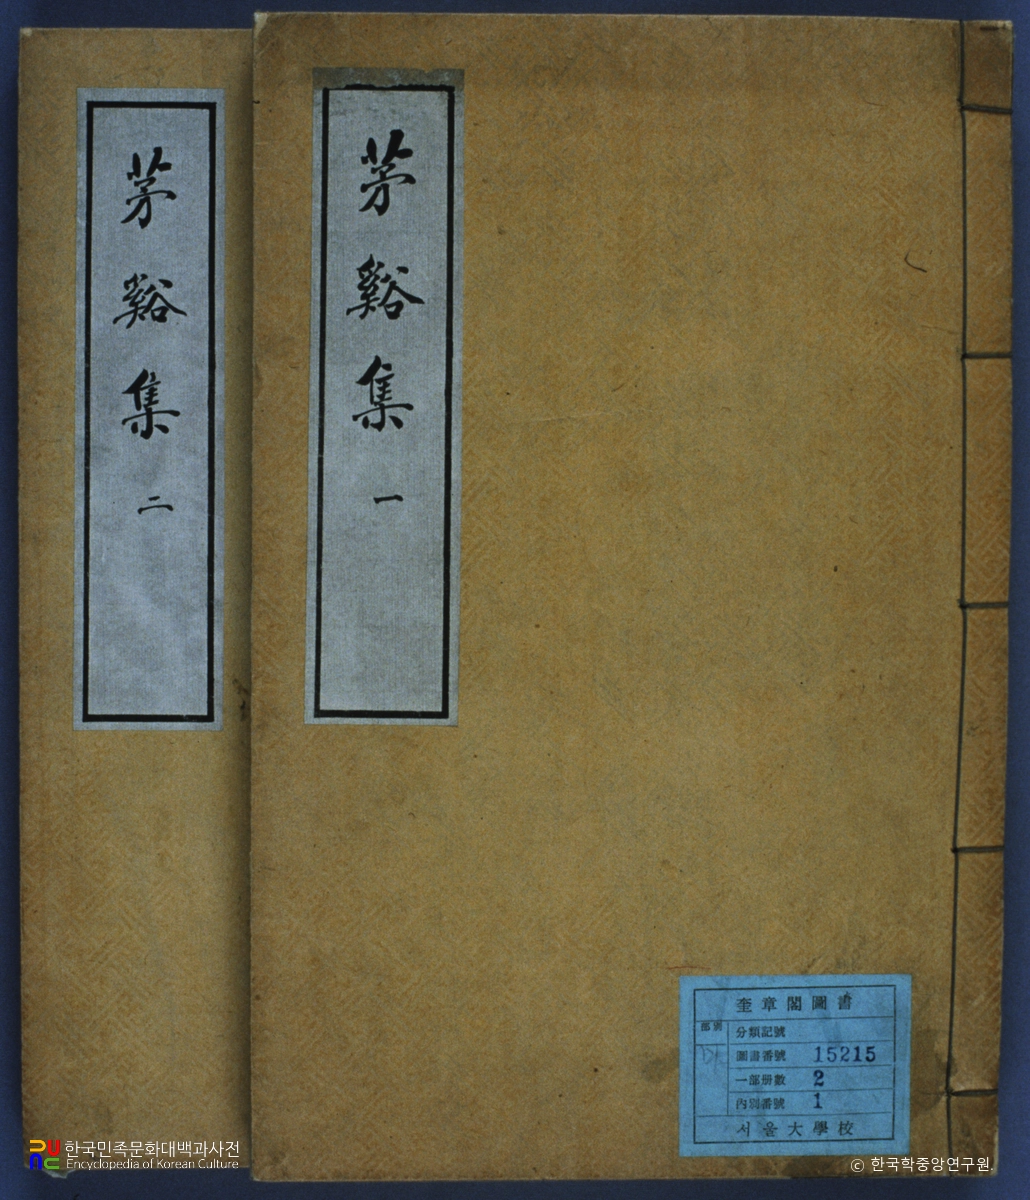 茅谿集 一
茅谿集 二
奎章閣圖書
部別
分類記號
圖書番號 15215
一部册數 2
內別番號 1
서울大學校
한국민족문화대백과사전
Encyclopedia of Korean Culture
© 한국학중앙연구원